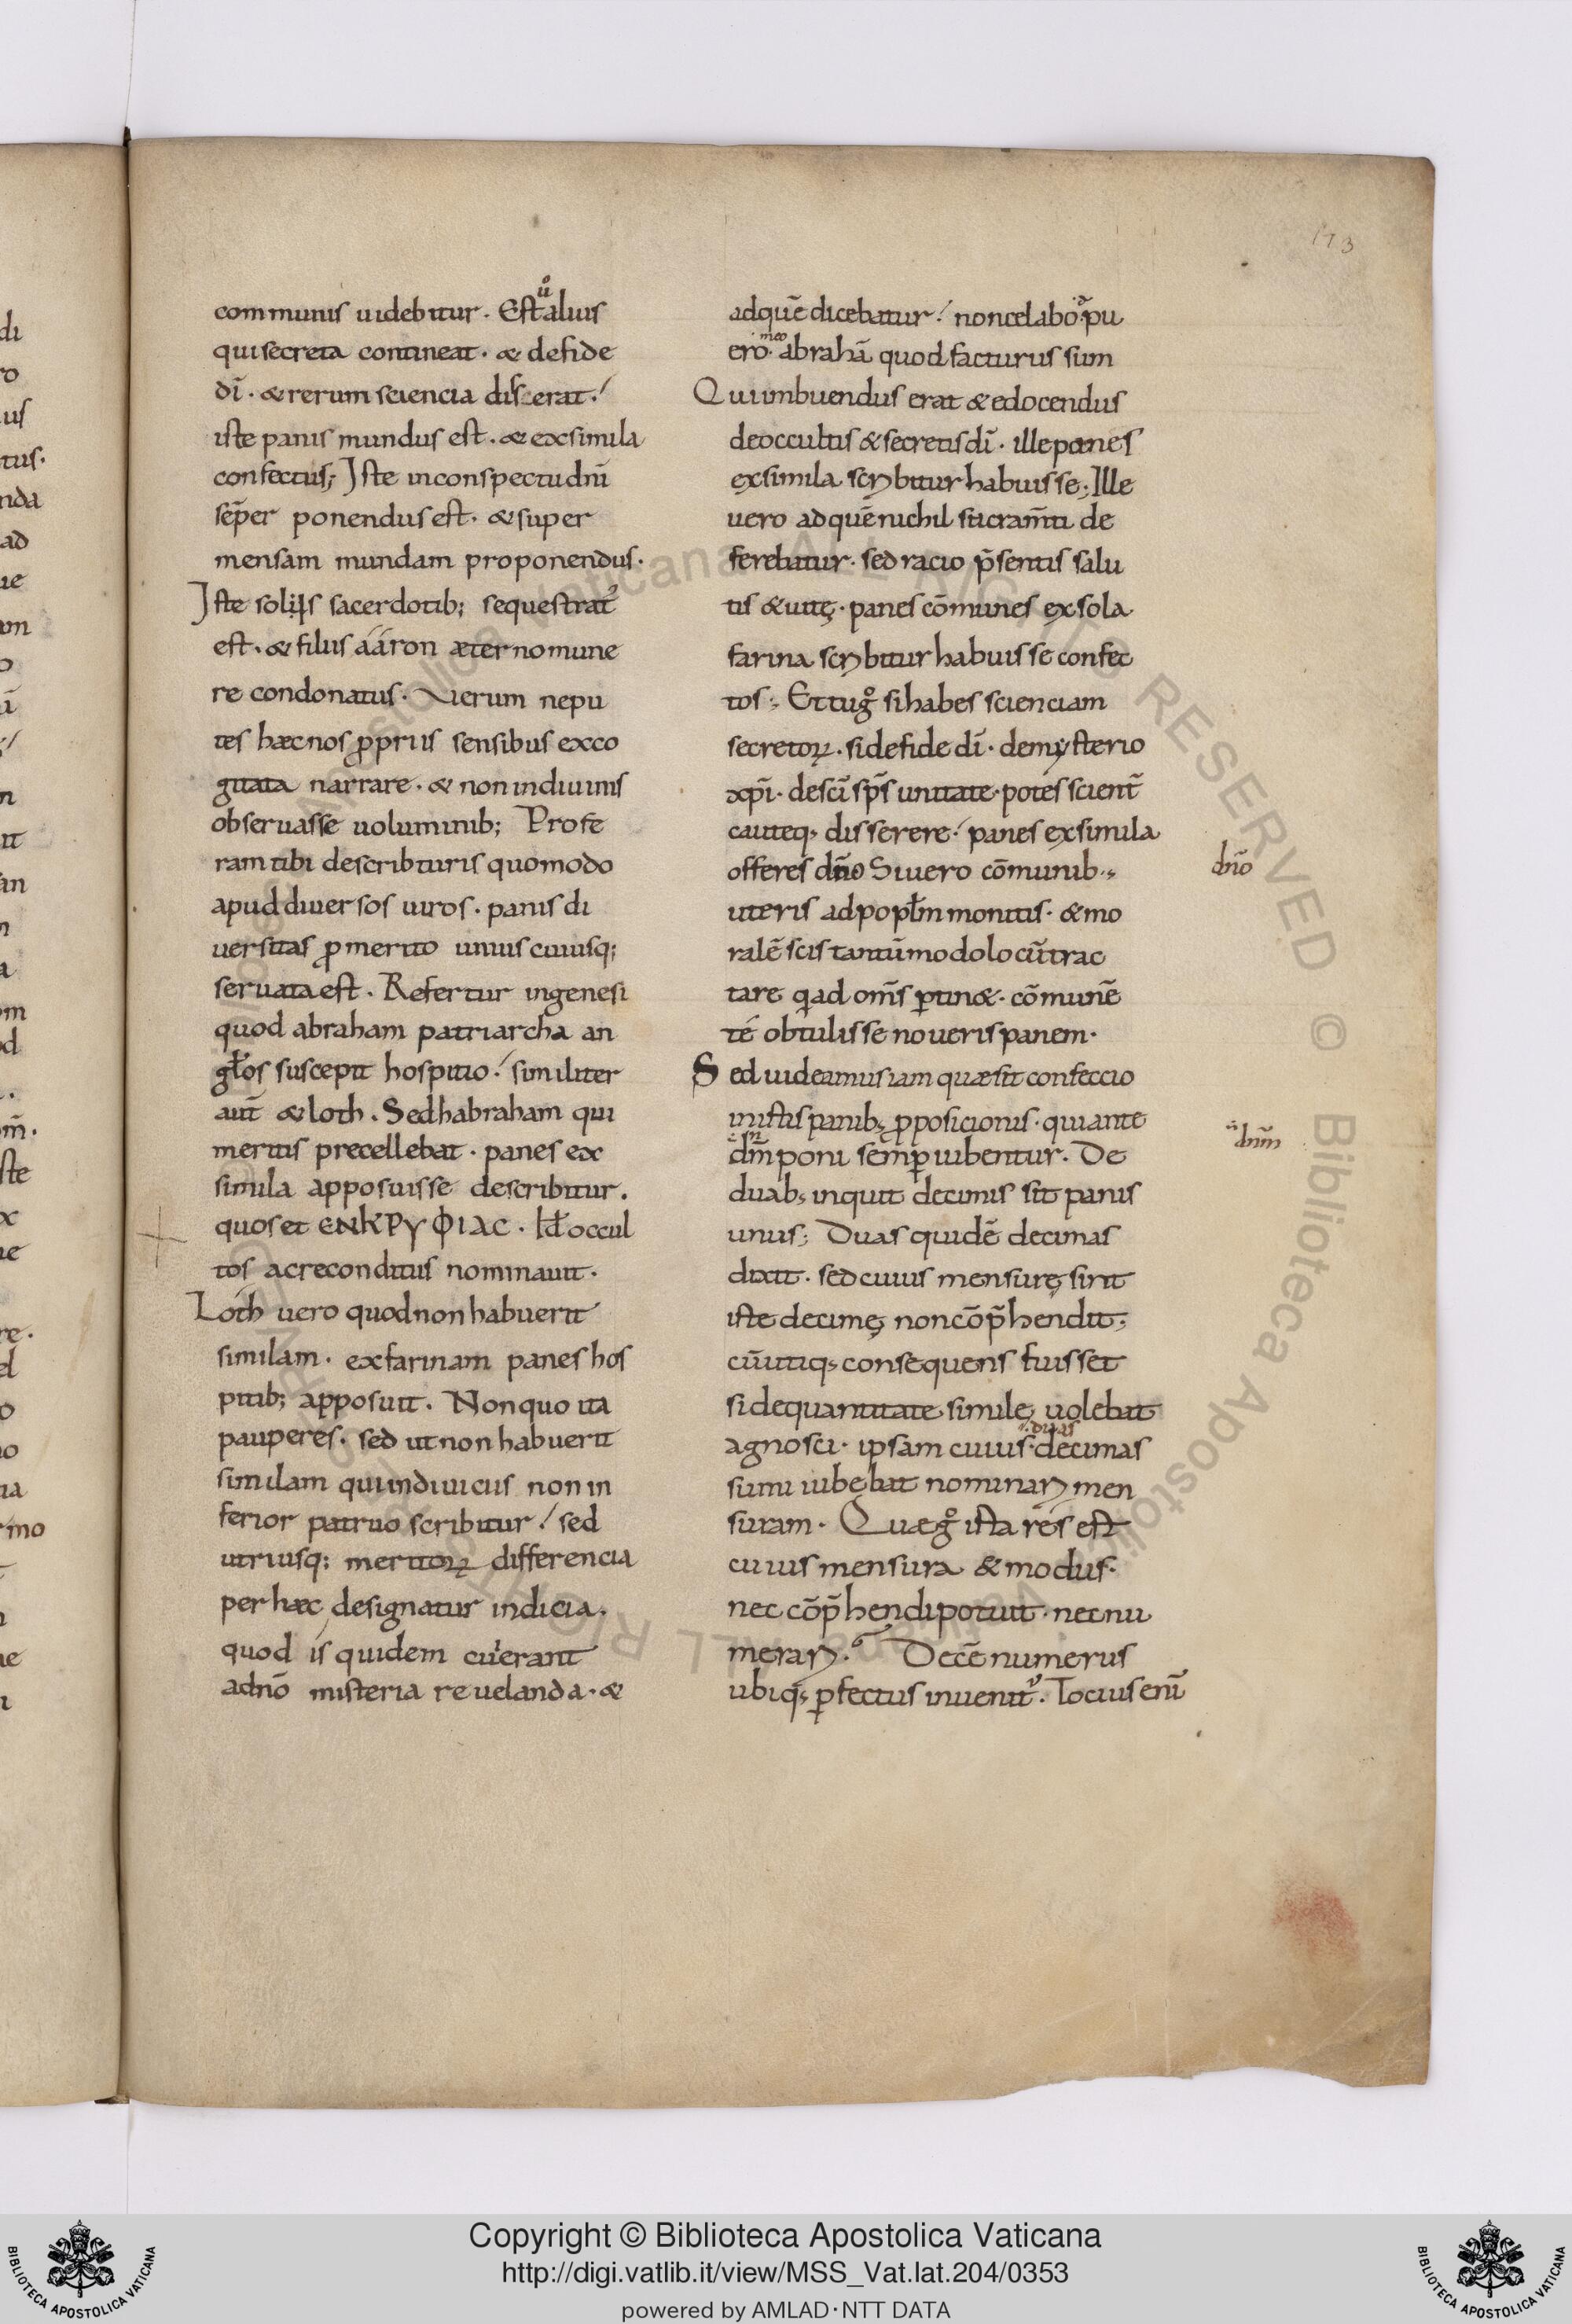 173
communis uidebitur. Est ů alius
qui secreta contineat. & de fide
dī. & rerum sciencia disserat.
iste panis mundus est. & ex simila
confectus; Iste in conspectu dn̄i
sēper ponendus est. & super
mensam mundam proponendus.
Iste solis sacerdotib; sequestrat᾽
est. & filiis ááron æterno mune
re condonatus. Verum ne pu
tes hæc nos ꝓpriis sensibus exco
gitata narrare. & non in diuinis
obseruasse uoluminib; Profe
ram tibi describturis quomodo
apud diuersos uiros. panis di
uersitas ꝓ merito unius cuiusq;
seruata est. Refertur in genesi
quod abraham patriarcha an
gl̄os suscepit hospitio. similiter
aut̄ & loth. Sed habraham qui
meritis precellebat. panes ex
simila apposuisse describitur.
quos et ЄNKPYΦIAC. Id̄ occul
tos ac reconditus nominauit.
Lóth uero quod non habuerit
similam. ex farinam panes hos
pitib; apposuit. Non quo ita
pauperes. sed ut non habuerit
similam qui indiuicus non in
ferior patruo scribitur. sed
utriusq; meritoꝝ differencia
per hæc designatur indicia.
quod is quidem cui erant
a dn̄o misteria reuelanda. &
ad quē dicebatur. non celabo ā pu
ero meo abrahā quod facturus sum
Qui imbuendus erat & edocendus
de occultis & secretis dī. ille panes
ex simila scribitur habuisse; Ille
uero ad quē nichil sacram̄ti de
ferebatur. sed racio p̄sentis salu
tis & uitę. panes cōmunes ex sola
farina scribitur habuisse confec
tos; Et tu gͦ si habes scienciam
secretoꝝ. si de fide dī. de mẏsterio
xp̄i. de sc̄i sp̄s unitate. potes scient̄
cauteq; disserere. panes ex simila
offeres dn̄o Si uero cōmunib;
uteris ad popl̄m monitis. & mo
ralē scis tantūmodo locūtrac
tare q ad om̄s ꝑtin&. cōmunē
té obtulisse noueris panem.
Sed uideamus iam quæ sit confeccio
in istis panib; ꝓposicionis. qui ante
dm̄ poni semꝑ iubentur. De
duab; inquit decimis sit panis
unus; Duas quidē decimas
dixit. sed cuius mensurę sint
iste decimę non cōp̄hendit;
cū utiq; consequens fuisset
si de quantitate similę uolebat
agnosci. ipsam cuius duas decimas
sumi iubebat nominari men
suram. Quæ gͦ ista rés est
cuius mensura & modus.
nec cōp̄hendi potuit. nec nu
merari. Decē numerus
ubiq; ꝑfectus inuenit᾽. Tocius enī
dn̄o
dn̄m
Copyright © Biblioteca Apostolica Vaticana
http://digi.vatlib.it/view/MSS_Vat.lat.204/0353
powered by AMLAD·NTT DATA
BIBLIOTECA APOSTOLICA VATICANA
BIBLIOTECA APOSTOLICA VATICANA